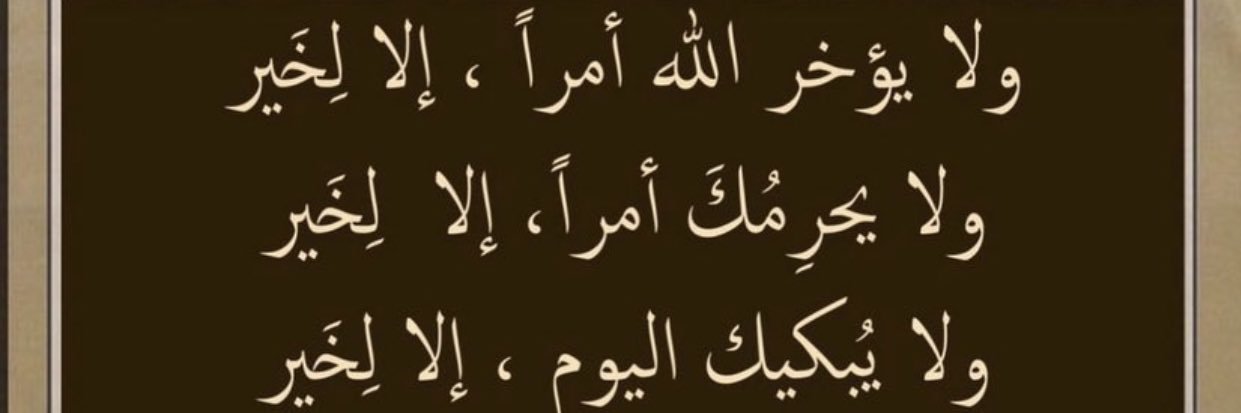 ولا يؤخر الله أمراً ، إلا لِخَير
ولا يحرِمُكَ أمراً، إلا لِخَير
ولا يُبكيك اليوم ، إلا لِخَير